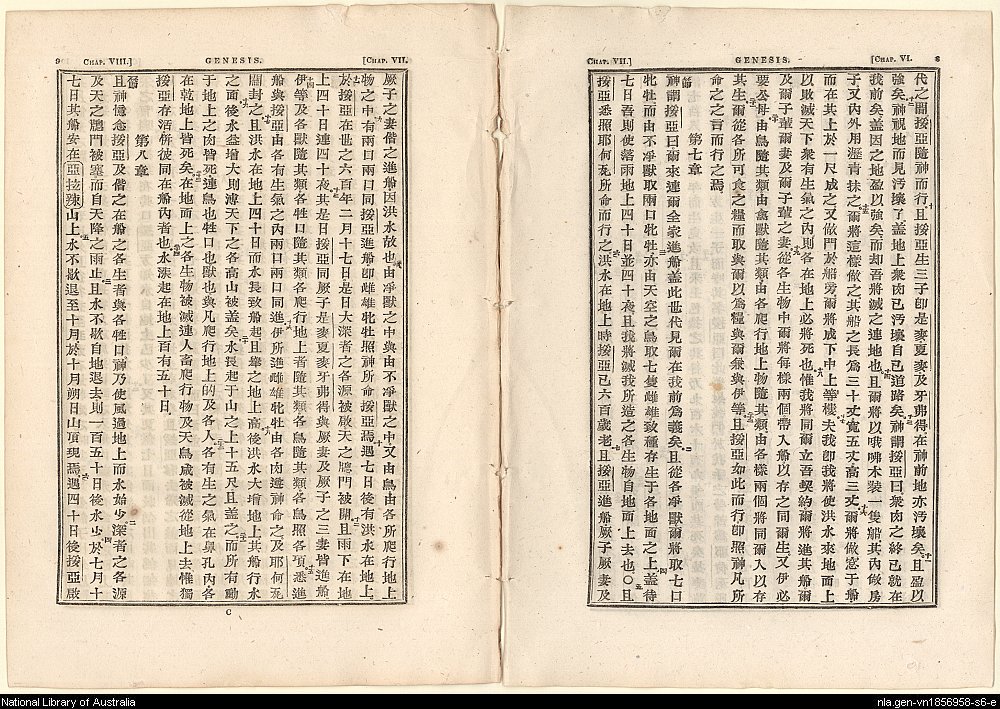 CHAP. VII.] GENESIS. [CHAP. VI. 8
代之間挼亞隨神而行且挼亞生三子卽是麥夏麥及牙弗得在神前地亦汚壞矣且盈以
強矣神視地而見汚壞了蓋地上衆肉已汚壞自己道路矣神謂挼亞曰衆肉之終已就在
我前矣蓋因之地盈以強矣而却吾將滅之連地也且爾將以哦咈木裝一隻船其內做房
子又內外用瀝靑抹之爾將這樣做之其船之長為三十丈寬五丈高三丈爾將做窓于船
而在其上於一尺成之又做門於船旁爾將成下中上等樓夫我卽我將使洪水來地面上
以敗滅天下衆有生氣之內則各在地上必將死也惟我將同爾立吾契約爾將進其船爾
及爾子輩爾妻及爾子輩之妻從各生物中爾將每樣兩個帶入船以存之同爾生又伊必
要公母由鳥隨其類由禽獸隨其類由各爬行地上物隨其類由各樣兩個將同爾入以存
其生爾從各所可食之糧而取與爾以為糧與爾兼與伊等且挼亞如此而行卽照神凡所
命之之言而行之焉
第七章
神謂挼亞曰爾來連爾全家進船蓋此世代見爾在我前為義矣且從各凈獸爾將取七口
牝牡而由不凈獸取兩口牝牡亦由天空之鳥取七隻雌雄致種存生于各地面之上蓋待
七日吾則使落雨地上四十日並四十夜且我將滅我所造之各生物自地面上去也○且
挼亞悉照耶何瓦所命而行之洪水在地上時挼亞已六百歲老且挼亞進船厥子厥妻及
9 CHAP. VIII.] GENESIS. [CHAP. VII.
厥子之妻偕之進船因洪水故也由凈獸之中與由不凈獸之中又由鳥由各所爬行地上
物之中有兩口兩口同挼亞進船卽雌雄牝牡照神所命挼亞焉遇七日後有洪水在地上
於挼亞在世之六百年二月十七是日大深者之各源被啟天之牕門被開且雨下在地
上四十日連四十夜其是日挼亞同厥子是麥夏麥牙弗得與厥妻及厥子之三妻皆進船
伊等及各獸隨其類各牲口隨其類各爬行地上者隨其類各鳥隨其類各鳥照各項悉進
船與挼亞由各有生氣之內兩口兩口同進伊所進雌雄牝牡由各肉遵神命之及耶何瓦
關封之且洪水在地上四十日而水長致船起且舉之地上高後洪水大增地上其船行水
之面後水益增大則溥天下之各高山被蓋矣水長起于山之上十五尺且蓋之而所有動
于地上之肉皆死連鳥也牲口也獸也與凡爬行地上的及各人各有生之氣在鼻孔內各
在乾地上皆死矣在地面上之各生物被滅連人畜爬行物及天鳥咸被滅從地上去惟獨
挼亞存活併彼同在船內者也水漲起在地上百有五十日
第八章
且神憶念挼亞及偕之在船之各生者與各牲口神乃使風過地上而水始少深者之各源
及天之牕門被塞而自天降之雨止且水不歇自地退去則一百五十日後水少於七月十
七日其船安在亞拉辣山上水不歇退至十月於十月朔日山頂現焉遇四十日後挼亞啟
C
National Library of Australia
nla.gen-vn1856958-s6-e